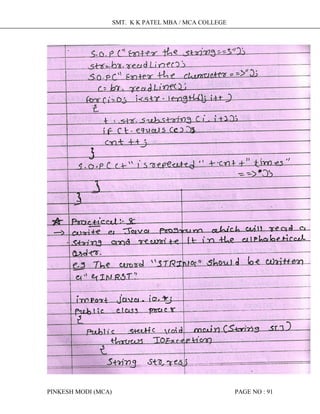 SMT. K K PATEL MBA / MCA COLLEGE
S.O.P ("Enter the string = =>");
str=br.readLine();
S.O.P("Enter the character = =>");
c= br. readLine();
for(i=0; i<str.length(); i++)
{
t = str. substring (i, i+1);
if (t. equals (c))
cnt ++;
}
S.O.P( c+" is repeated "+cnt+" times"
= =>");
}
}
* Practical:- 8
→ write a Java Program which will read a
string and rewrite it in the alphabetical
order.
e.g The word "STRING" should be written
a "GINRST"
import java.io.*;
Public class pracr
{
Public static void main (String s[])
throws IOException
{
String str, res;
PINKESH MODI (MCA)
PAGE NO : 91